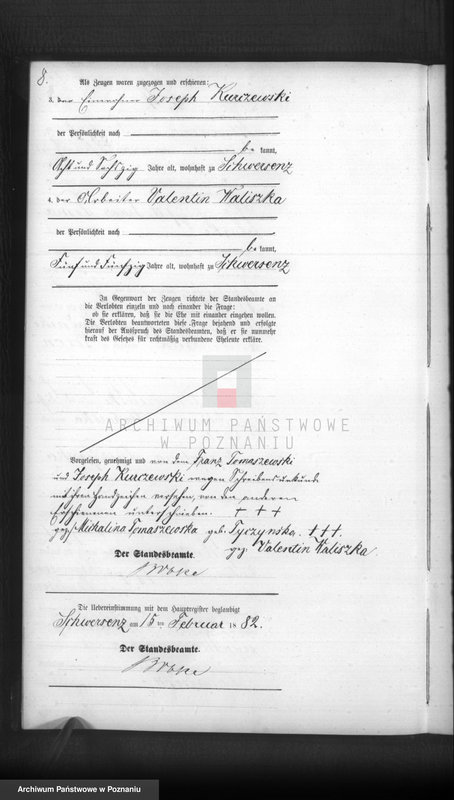 8.
Als Zeugen waren zugezogen und erschienen:
3. der Einwohner Joseph Kurczewski
der Persönlichkeit nach
be kannt,
Acht und Sechszig Jahre alt, wohnhaft zu Schwersenz
4. der Arbeiter Valentin Waliszka
der Persönlichkeit nach
be kannt,
Fünf und Fünfzig Jahre alt, wohnhaft zu Schwersenz
In Gegenwart der Zeugen richtete der Standesbeamte an
die Verlobten einzeln und nach einander die Frage:
ob sie erklären, daß sie die Ehe mit einander eingehen wollen.
Die Verlobten beantworteten diese Frage bejahend und erfolgte
hierauf der Ausspruch des Standesbeamten, daß er sie nunmehr
kraft des Gesetzes für rechtmäßig verbundene Eheleute erkläre.
ARCHIWUM PAŃSTWOWE
W POZNANIU
Vorgelesen, genehmigt und von dem Franz Tomaszewski
und Joseph Kurczewski wegen Schreibensunkunde
mit ihren Handzeichen versehen, von den anderen
Erschienenen unterschrieben. + + +
gez. Michalina Tomaszewska geb. Tyczynska. + + +.
gez. Valentin Waliszka.
Der Standesbeamte.
Die Uebereinstimmung mit dem Hauptregister beglaubigt
Schwersenz am 15 ten Februar 18 82.
Der Standesbeamte.
Archiwum Państwowe w Poznaniu